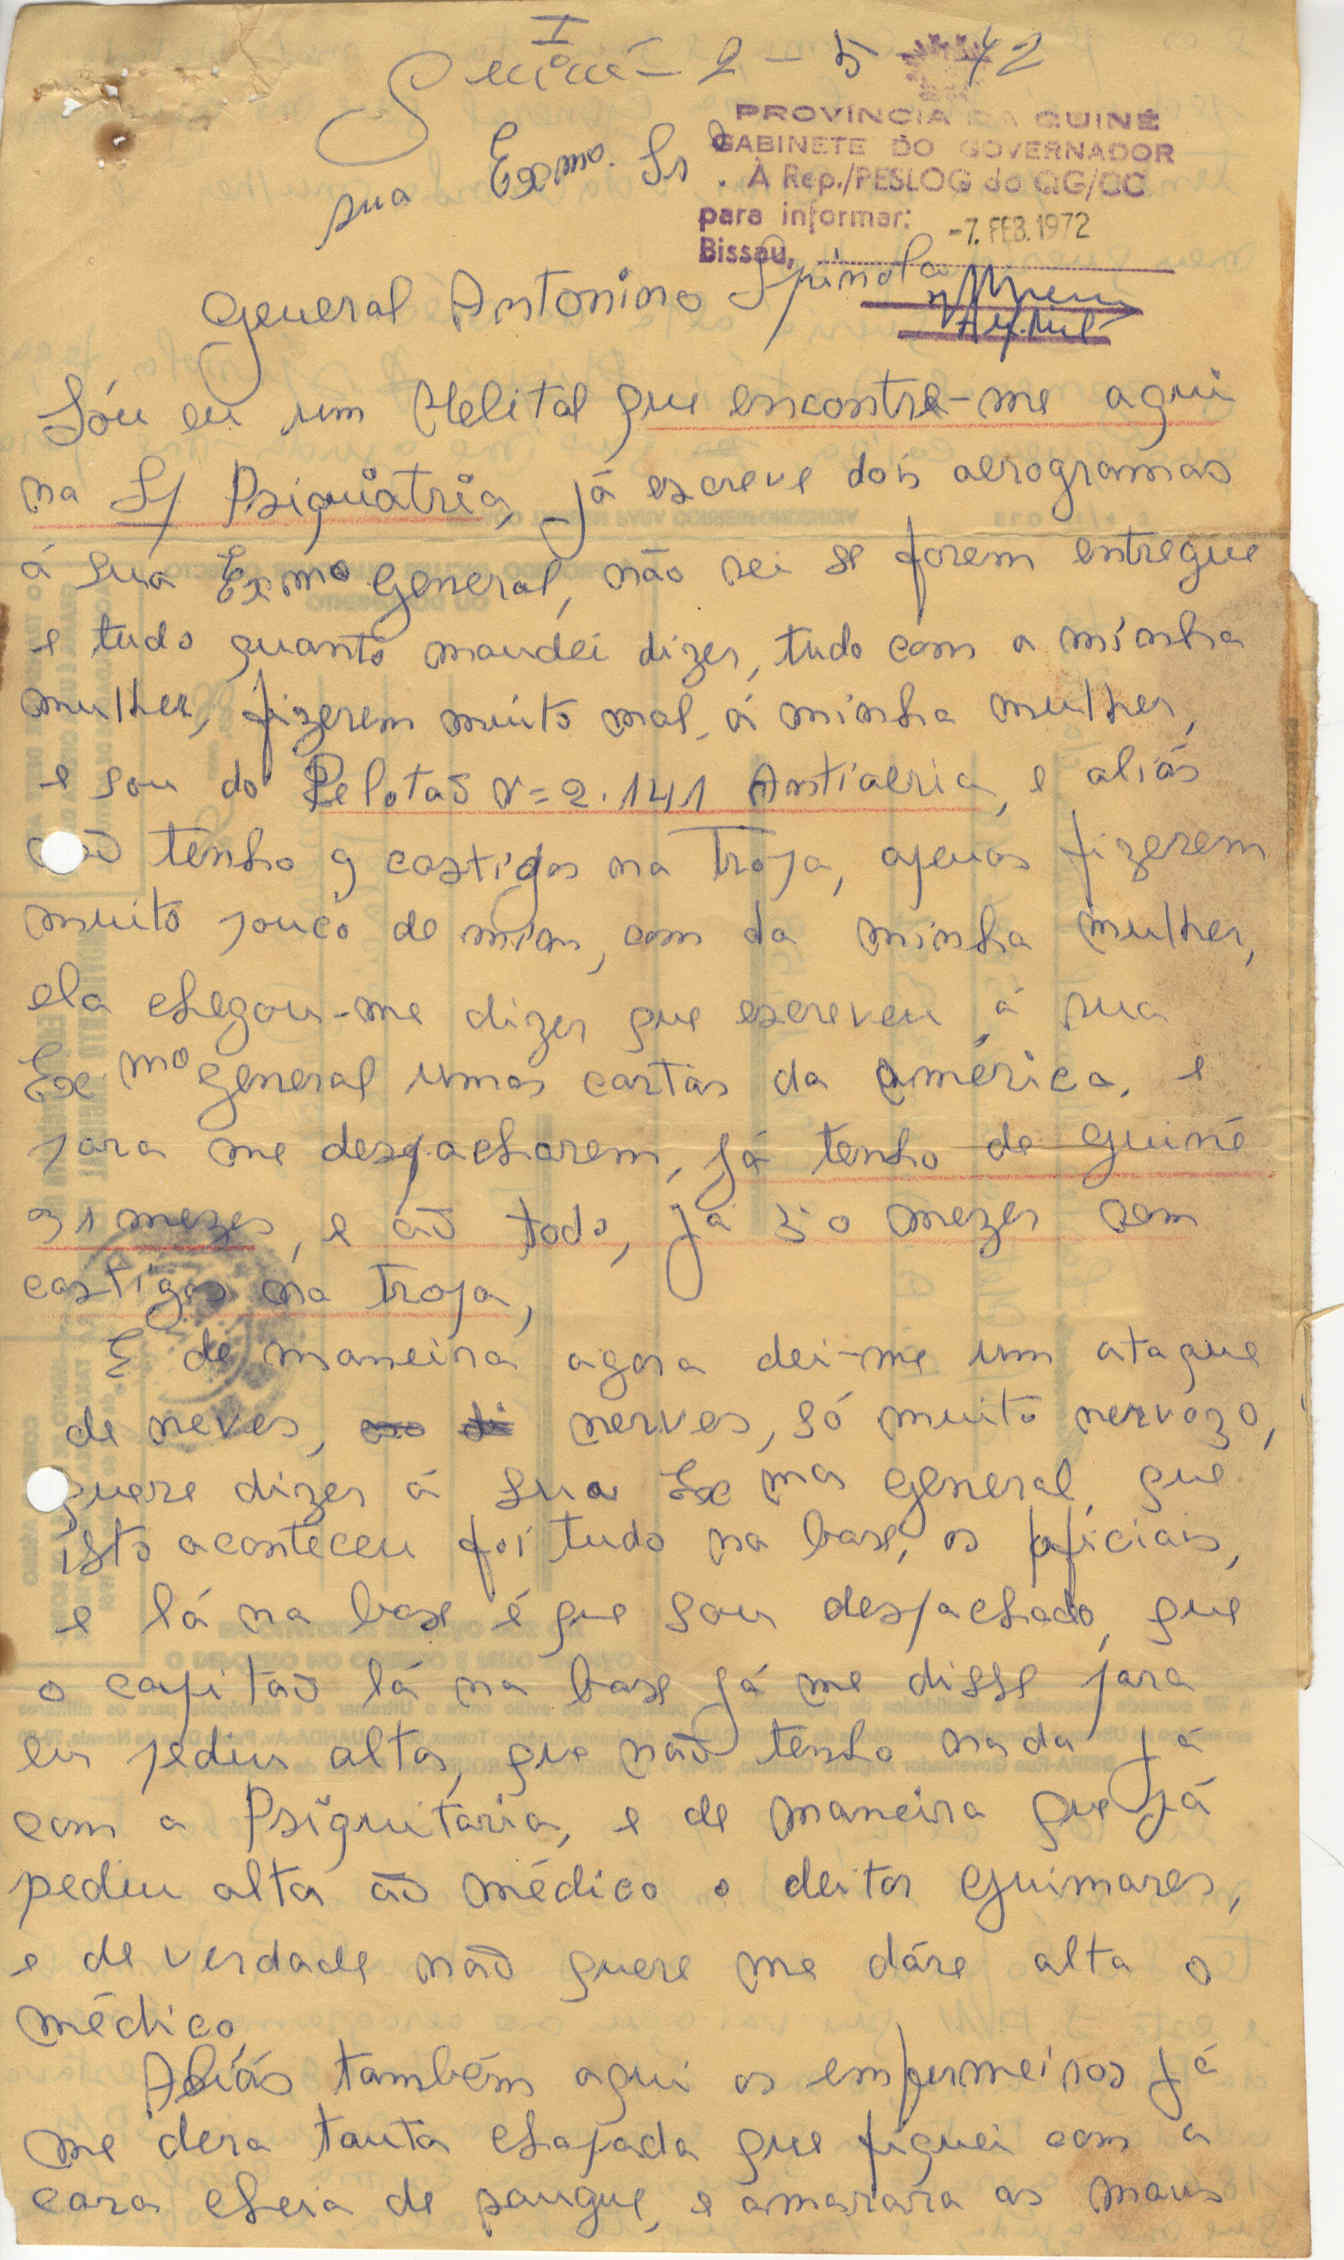 I
Guiné - 2 - 5 72
PROVÍNCIA DA GUINÉ
GABINETE DO GOVERNADOR
À Rep./PESLOG do QG/CC
para informar:
-7. FEB. 1972
Bissau,
sua Exmo. Sr
General Antonino Spinola
Sóu eu um Melital que encontre-me aqui
na S/ Psiquiatria, já escreve dois aerogramas
á sua Exmo General, não sei se forem entregue
e tudo quanto mandei dizer, tudo com a minha
mulher, fizerem muito mal, á minha mulher,
e sou do Pelotas nº=2.141 Antiaeria, e aliás
não tenho castigos na Tropa, apenas fizerem
muito pouco de mim, com da minha mulher,
ela chegou-me dizer que escreveu á sua
Exmo General umas cartas da América, e
para me despacharem, já tenho de Guiné
mezes, e aõ todo, já 30 mezes sem
castigos na tropa,
E de maneira agora dei-me um ataque
de neves, nerves, só muito nervozo,
quere dizer á sua Exma General, que
isto aconteceu foi tudo na base, os oficiais,
e lá na base é que sou despachado, que
o capitão lá na base já me disse para
eu pediu alta, que não tenho nada já
com a Psiquitaria, e de maneira que já
pediu alta aõ médico o deitor Guimares,
e de verdade não quere me dáre alta o
médico,
Aliás também aqui os enfermeiros já
me dera tanta chapada que fiquei com a
cara cheia de sangue, e amarara as maus